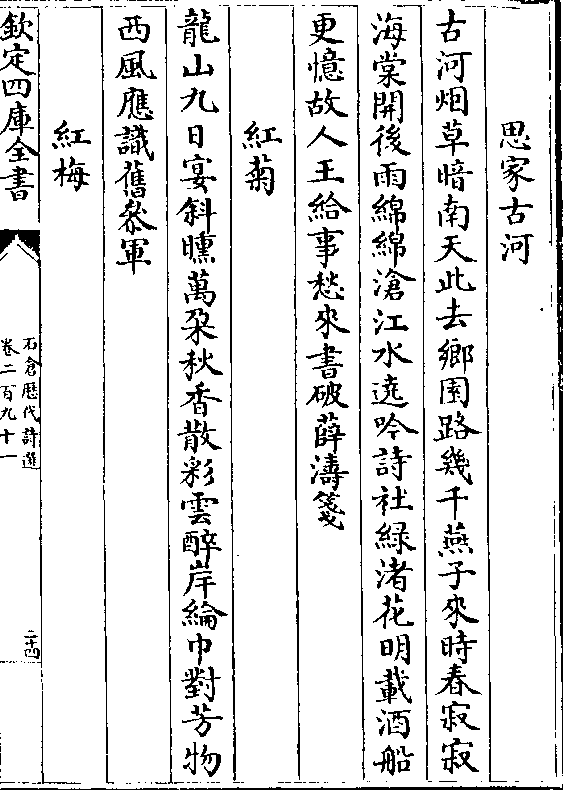 思家古河
古河烟草暗南天此去鄉園路幾千燕子來時春寂寂
海棠開後雨綿綿滄江水遶吟詩社綠渚花明載酒船
更憶故人王給事愁來書破薛濤箋
紅菊
龍山九日宴斜曛萬朶秋香散彩雲醉岸綸巾對芳物
西風應識舊叅軍
紅梅
欽定四庫全書
石倉歷代詩選
卷二百九十一
二十四